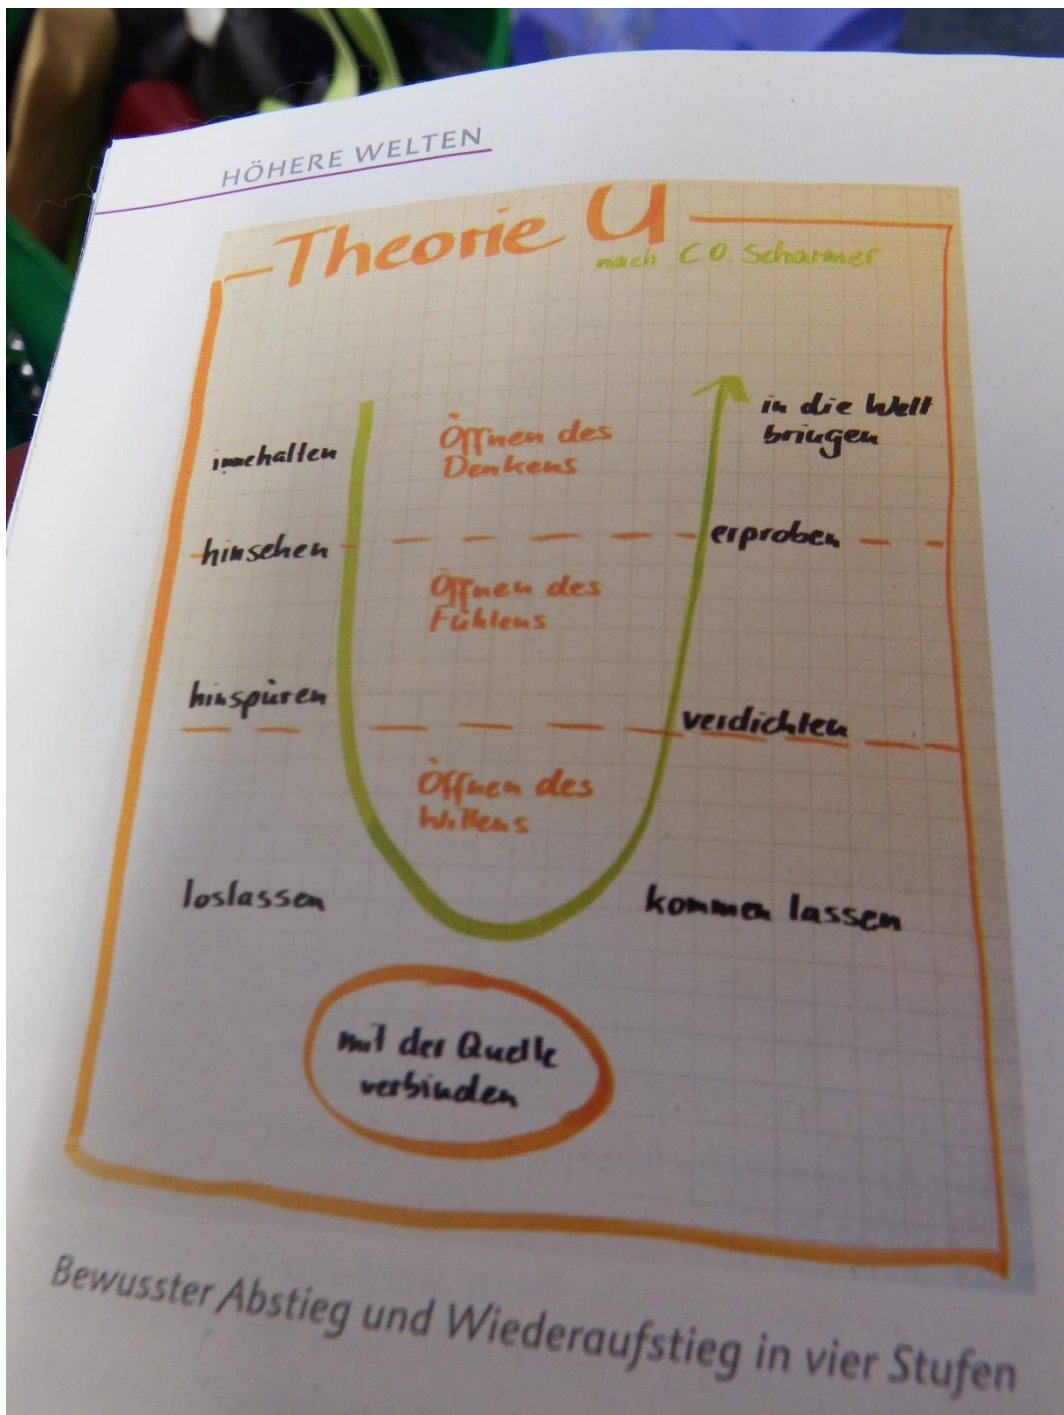 HÖHERE WELTEN
Theorie U
nach C O. Scharmer
innehalten
Öffnen des
Denkens
in die Welt
bringen
hinsehen
erproben
Öffnen des
Fühlens
hinspüren
verdichten
Öffnen des
Willens
loslassen
kommen lassen
mit der Quelle
verbinden
Bewusster Abstieg und Wiederaufstieg in vier Stufen